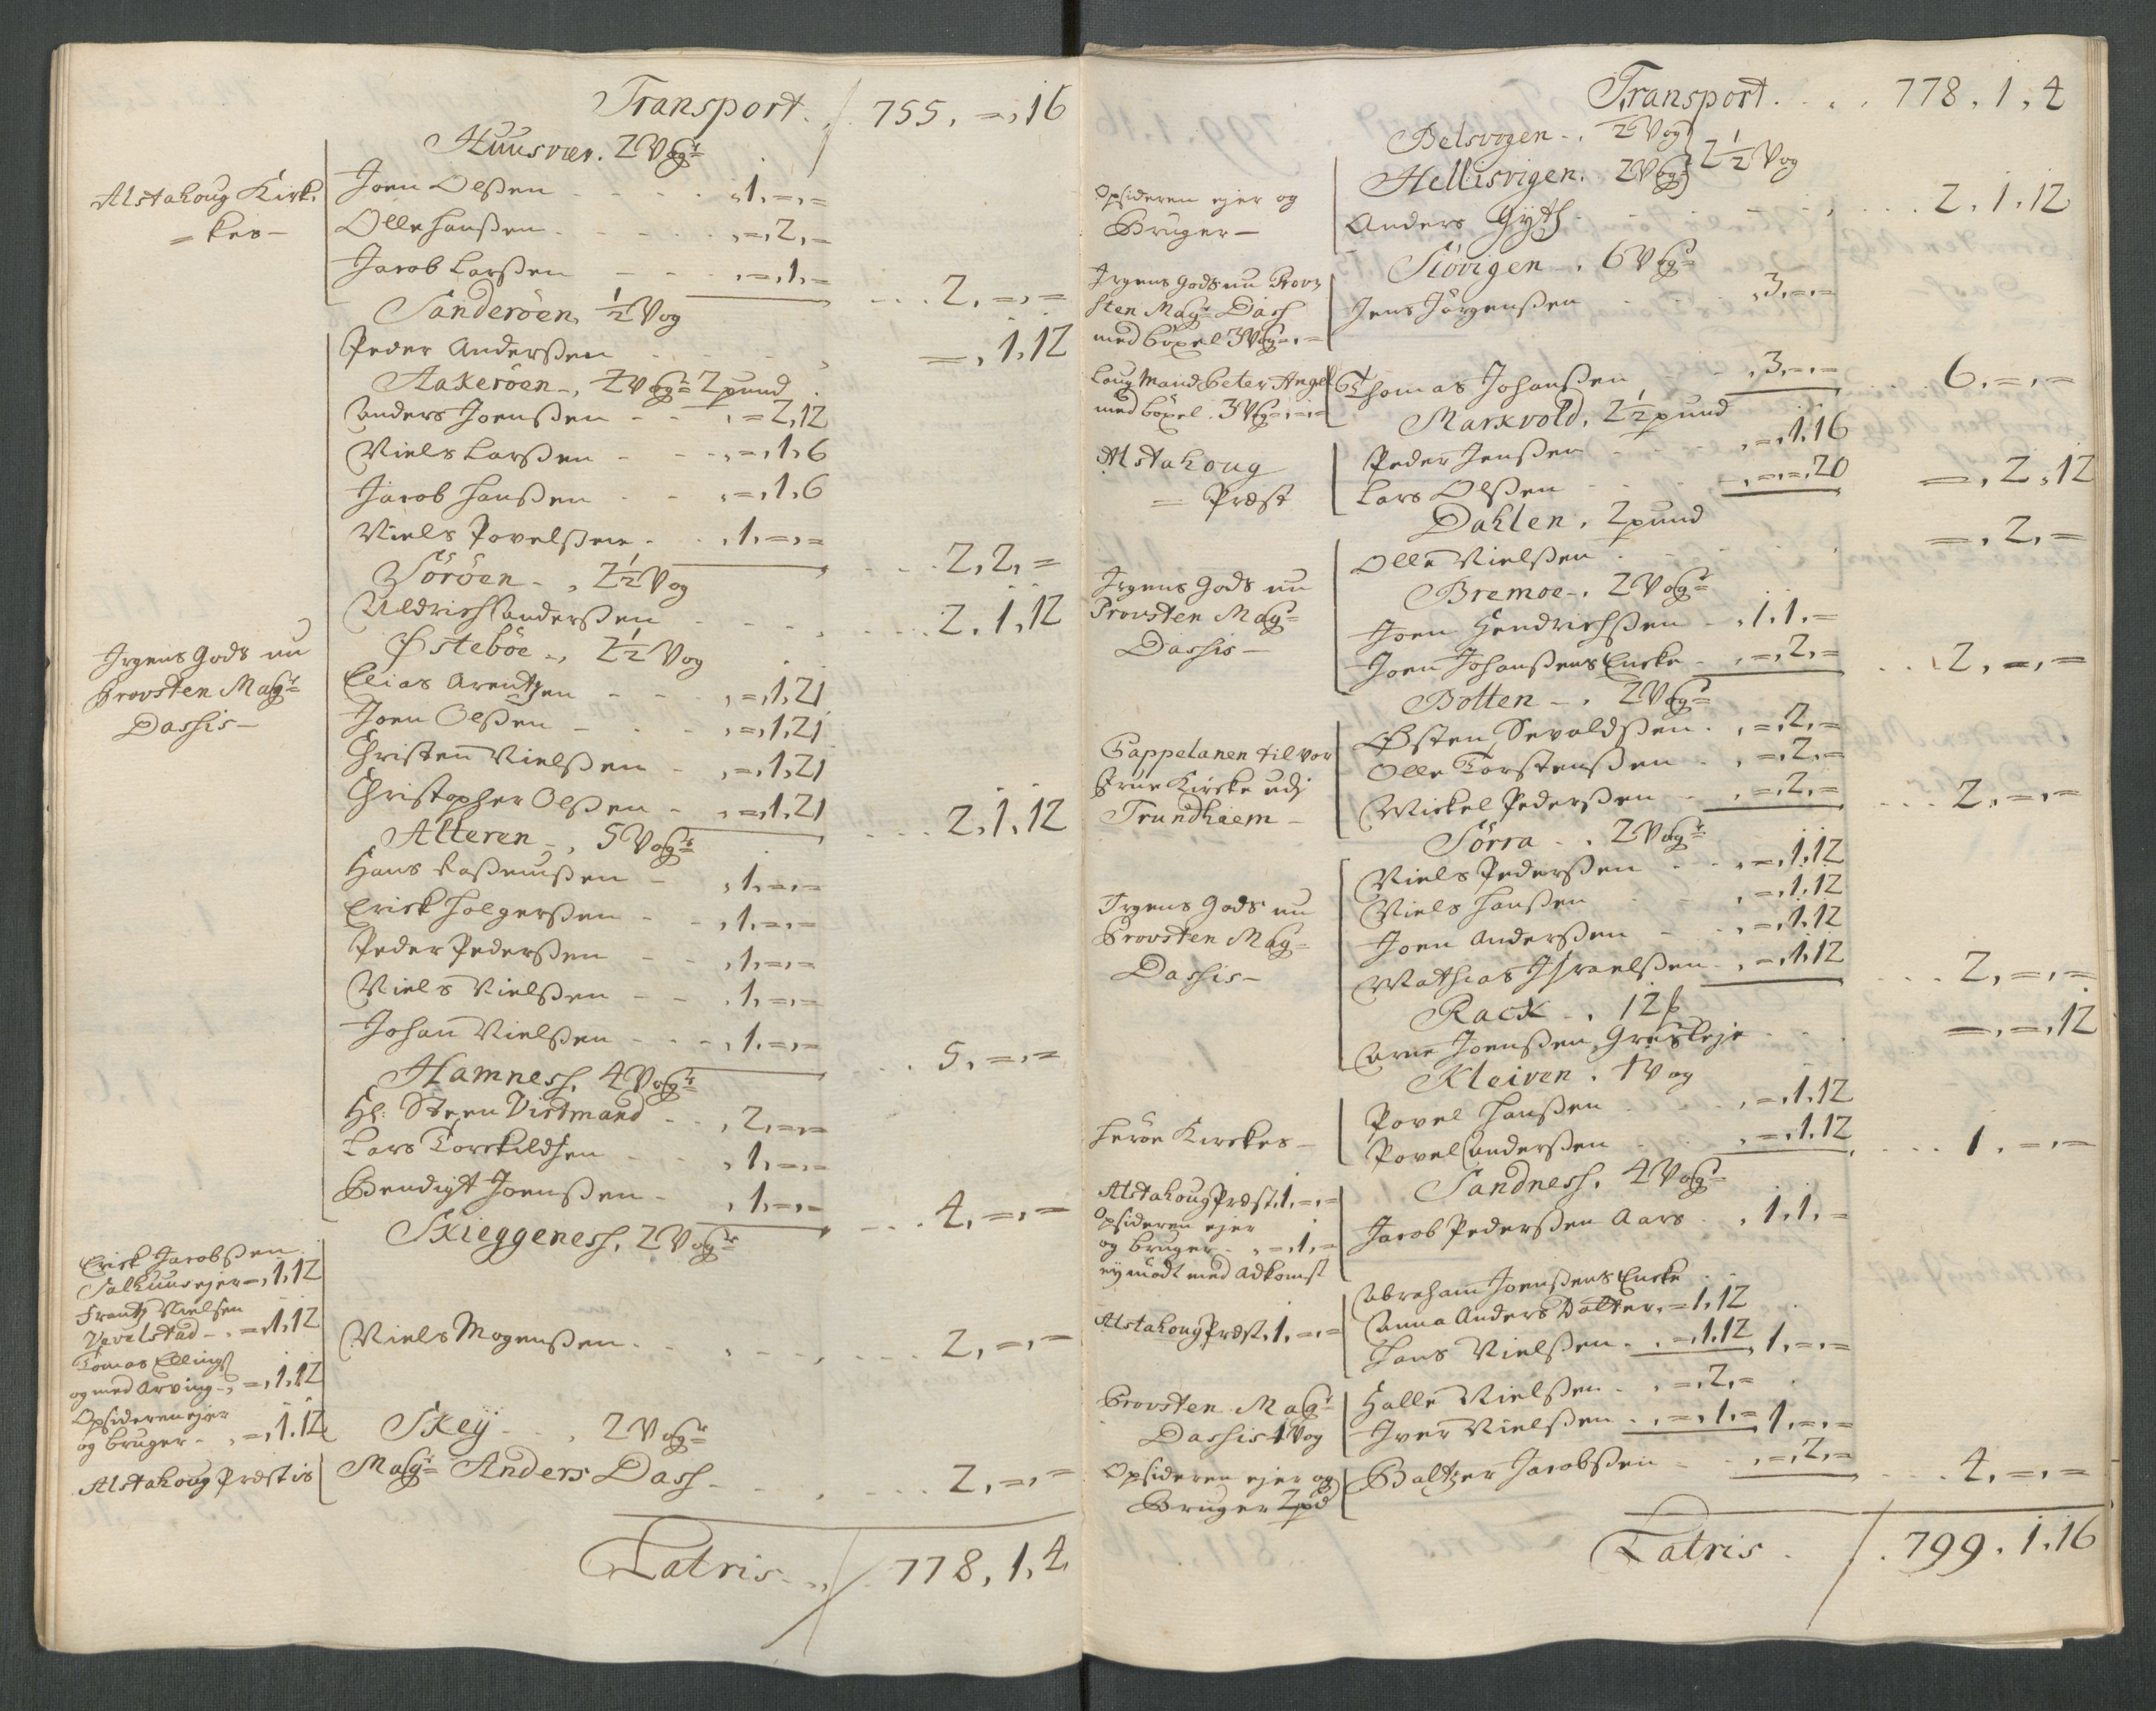 Transport . / 755, =, 16
Huusvær. 2 Vogr
Alstahoug Kirk,
= kes -
Joen Olßen - - - - , 1, =, =
Olle Hanßen - - - - , =, 2, =
Jacob Larßen - - - , =, 1, = . . . 2, =, =
Sanderöen, ½ Vog
Peder Anderßen - - - - , =, 1, 12
Aakeröen -, 2 Vogr 2 pund
Anders Joenßen - - , = 2, 12
Niels Larßen - - - , =, 1, 6
Jacob Hanßen - - , =, 1, 6
Niels Povelßen - . , 1, =, = . . . 2, 2, =
Söröen - , 2½ Vog
Uldrich Anderßen - - - - . . . 2, 1, 12
Østeböe -, 2½ Vog
Irgens Gods nu
Provsten Magr
Dassis -
Elias Arentzen - - , =, 1, 21
Joen Olßen - - - , =, 1, 21
Christen Nielßen - , =, 1, 21
Christopher Olßen - , =, 1, 21 . . . 2, 1, 12
Alteren -, 5 Vogr
Hans Raßmußen - , 1, =, =
Erick Holgerßen - - , 1, =, =
Peder Pederßen - - , 1, =, =
Niels Nielßen - - , 1, =, =
Johan Nielßen - - - , 1, =, = . . . 5, =, =
Hamness, 4 Vogr
Hr: Steen Vistmand - . , 2, =, =
Lars Torkildsen - - , 1, =, =
Bendigt Joenßen - , 1, =, = . . . 4, =, =
Skieggeness, 2 Vogr
Erick Jacobßen
Salhuus ejer =, 1, 12
Frantz Nielsen
Vevelstad -, =, 1, 12
Tomas Ellingß
og med Arving -, =, 1, 12
Opsideren ejer
og bruger - , =, 1, 12
Niels Mogenßen . . . . 2, =, =
Skey - . , 2 Vogr
Alstahoug Præstis
Magr Anders Dass - . . . . 2, =, =
Latris - , / 778, 1, 4
Transport . . . . 778, 1, 4
Belsvogen -. ½ Vog
Hellisvigen. 2 Vogr } 2½ Vog
Opsideren ejer og
Bruger -
Anders Gyth - - - - . . . 2, 1, 12
Siövigen -, 6 Vogr
Irgens Gods nu Prov,
sten Magr Dass
med böxel 3 Vog =, =
Jens Jörgenßen - - - , 3, =, =
Laug Mand Peter Angel
med böxel. 3 Vog =, =, =
Thomas Johanßen - , 3, =, = . . . 6, =, =
Markvold, 2½ pund
Alstahoug
= Præst
Peder Jenßen - - - , =, 1, 16
Lars Olßen - - - , =, =, 20 =, 2, 12
Dahlen, 2 pund
Olle Nielßen - - - - =, 2, =
Bremoe -, 2 Vogr
Irgens Gods nu
Provsten Mag=
Dassis -
Joen Hendrichßen - , 1, 1, =
Joen Johanßens Encke - , =, 2, = . . . 2, =, =
Botten -, 2 Vogr
Cappelanen til vor
Frue Kircke udj
Trundhiem -
Østen Sevaldßen . , =, 2, =
Olle Torstenßen - , =, 2, =
Mickel Pederßen - , =, 2, = . . . 2, =, =
Sörra - . 2 Vogr
Irgens Gods nu
Provsten Mag=
Dassis -
Niels Pederßen - . , =, 1, 12
Niels Hanßen - - , =, 1, 12
Joen Anderßen - - , =, 1, 12
Mathias Israelßen - , =, 1, 12 . . . 2, =, =
Rack -. 12 ß
Arne Joenßen, Græsleje - . =, =, 12
Kleiven. 1 Vog
Heröe Kirckes -
Povel Hanßen - - , =, 1, 12
Povel Anderßen - - , =, 1, 12 . . . 1, =, =
Sandness, 4 Vogr
Alstahoug Præst, 1, =, =
Opsideren ejer
og bruger - , =, 1, =
ey mödt med Adkomst
Jacob Pederßen Aars - , 1, 1, =
Abraham Joenßens Encke
Alstahoug Præst, 1, =, =
Anna Anders Datter, = 1, 12
Hans Nielßen . , =, 1, 12 1, =, =
Provsten Magr
Dassis 1 Vog
Halle Nielßen . , =, 2, =
Iver Nielßen . , =, 1, = 1, =, =
Opsideren ejer og
Bruger 2 pd
Baltzer Jacobßen - - , =, 2, = . . . 4, =, =
Latris . / . 799, 1, 16